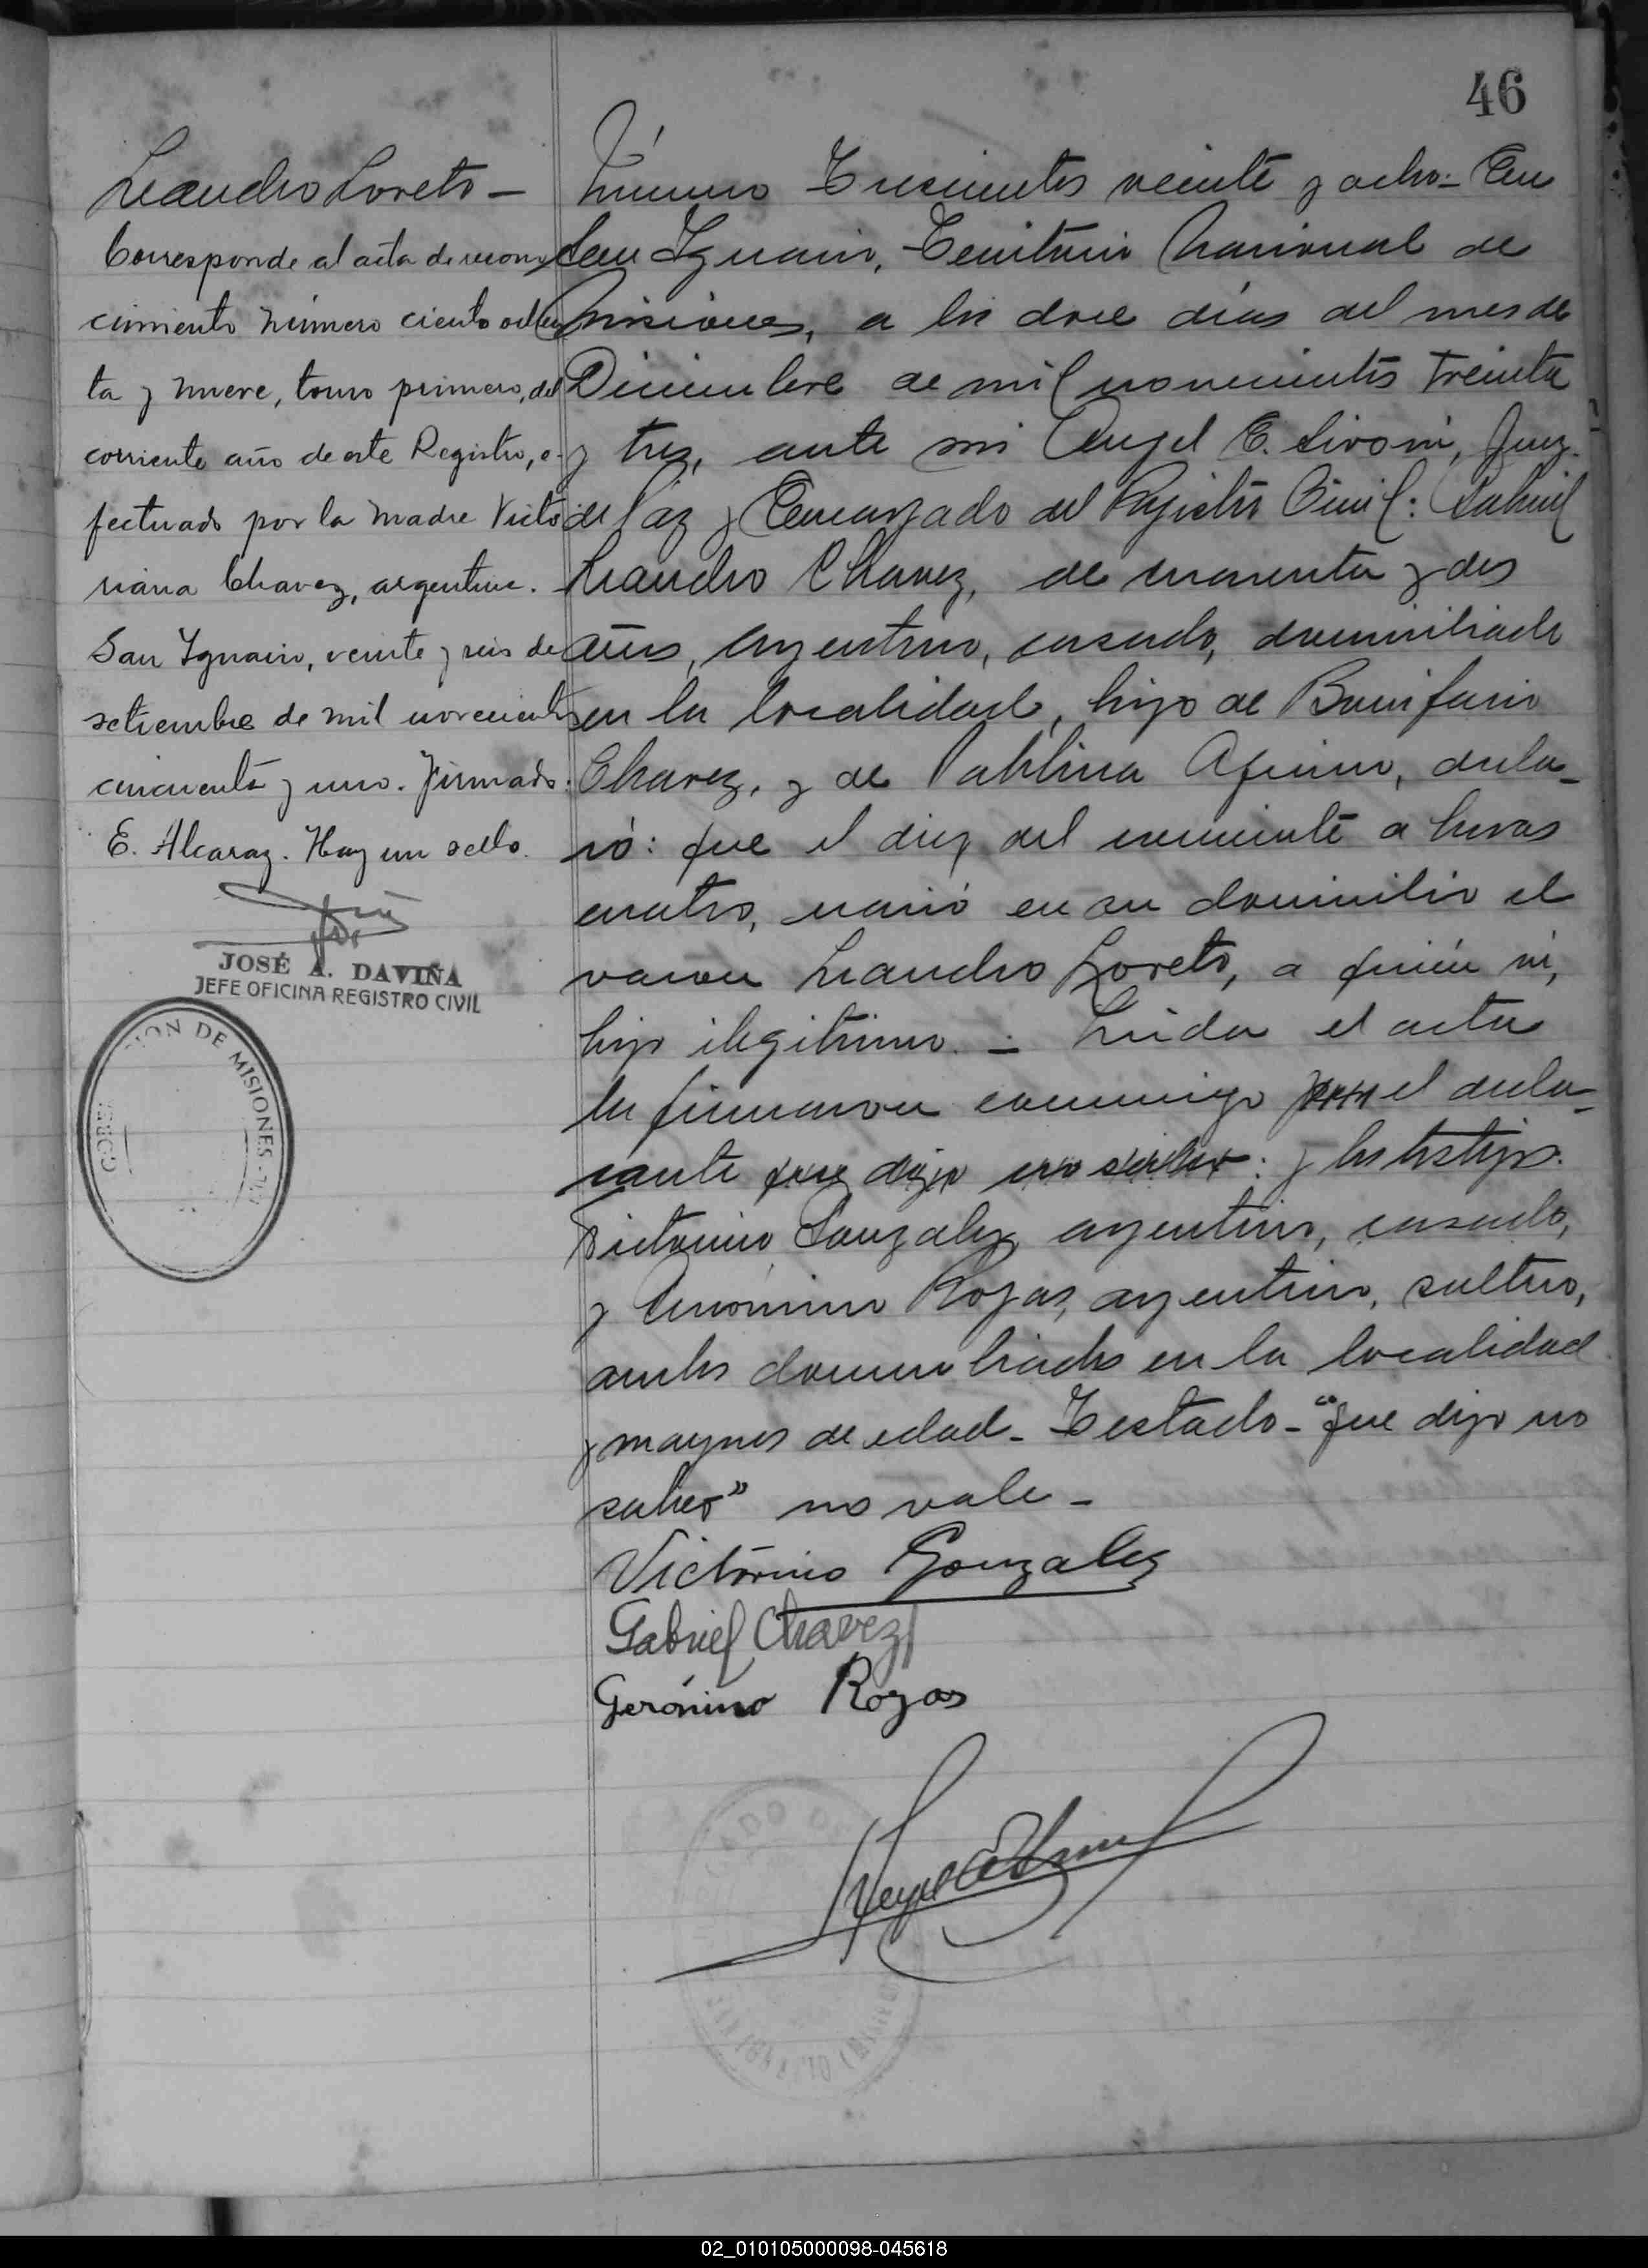 46
Leandro Loreto –
Corresponde al acta de recono
cimiento número ciento ochen
ta y nueve, tomo primero, del
corriente año de este Registro, e-
fectuado por la madre Victo
riana Chavez, argentina.
San Ignacio, veinte y seis de
setiembre de mil novecientos
cincuenta y uno. Firmado:
E. Alcaraz. Hay un sello.
JOSÉ A. DAVIÑA
JEFE OFICINA REGISTRO CIVIL
DE MISIONES
Número Trescientos veinte y ocho – En
San Ignacio, Territorio Nacional de
Misiones, a los doce días del mes de
Diciembre de mil novecientos treinta
y tres, ante mi Angel E. Sivori, Juez
de Paz y Encargado del Registro Civil: Gabriel
Leandro Chavez, de cuarenta y dos
años, argentino, casado, domiciliado
en la localidad, hijo de Bonifacio
Chavez, y de Pablina, decla-
ró: que el diez del corriente a horas
cuatro, nació en su domicilio el
varon Leandro Loreto, a quién vi,
hijo ilegitimo. – Leida el acta
la firmaron conmigo el decla-
rante que dijo no saber: y los testigos.
Victorino Gonzalez argentino, casado,
y Gerónimo Rojas, argentino, soltero,
ambos domiciliados en la localidad
y mayores de edad – Testado – "que dijo no
saber" no vale –
Victorino Gonzalez
Gabriel Chavez
Gerónimo Rojas
02_010105000098-045618